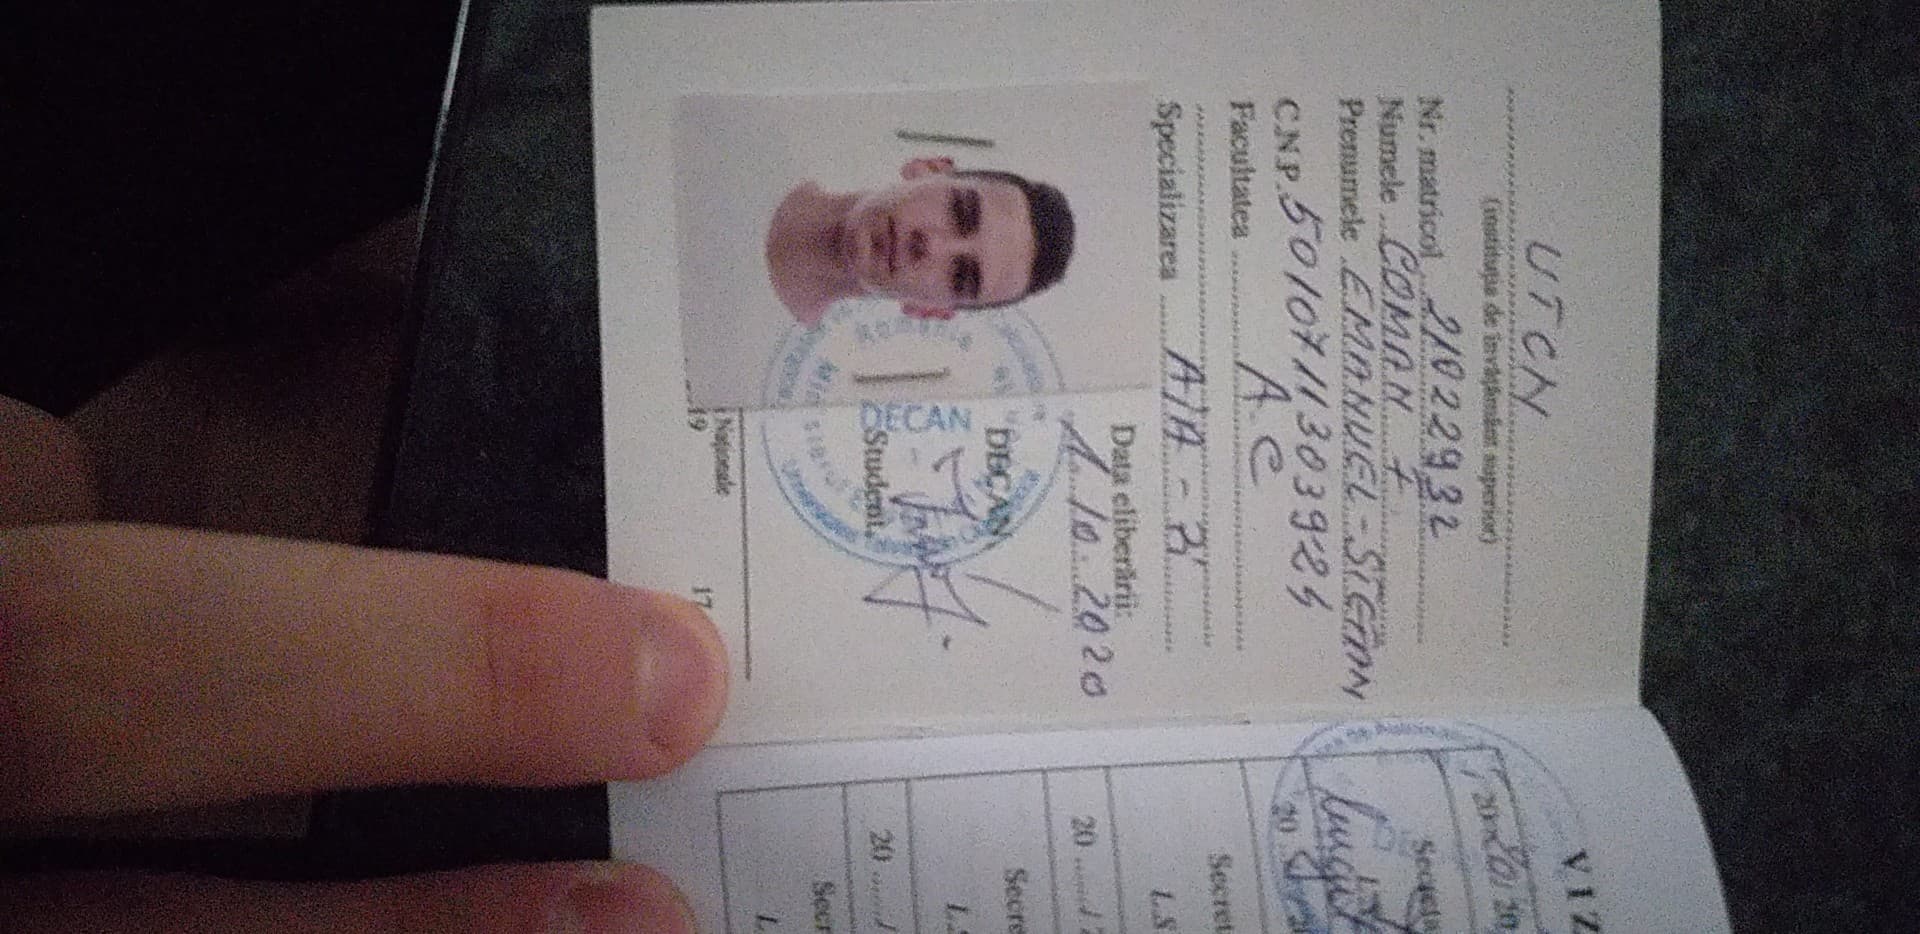 UTCN
(instituția de învățământ superior)
Nr. matricol 21022932
Numele COMAN F.
Prenumele EMANUEL-STEFAN
C.N.P. 5010711303924
Facultatea A.C
Specializarea AIA - zi
Data eliberării:
1.10.2020
DECAN,
DECAN
Student,
Naționale
19 17
VIZ
20 20/ 20
Secreta
20
Secret
L.S
20 ....../ 2
Secre
L.S
20 ....../
Secr
L